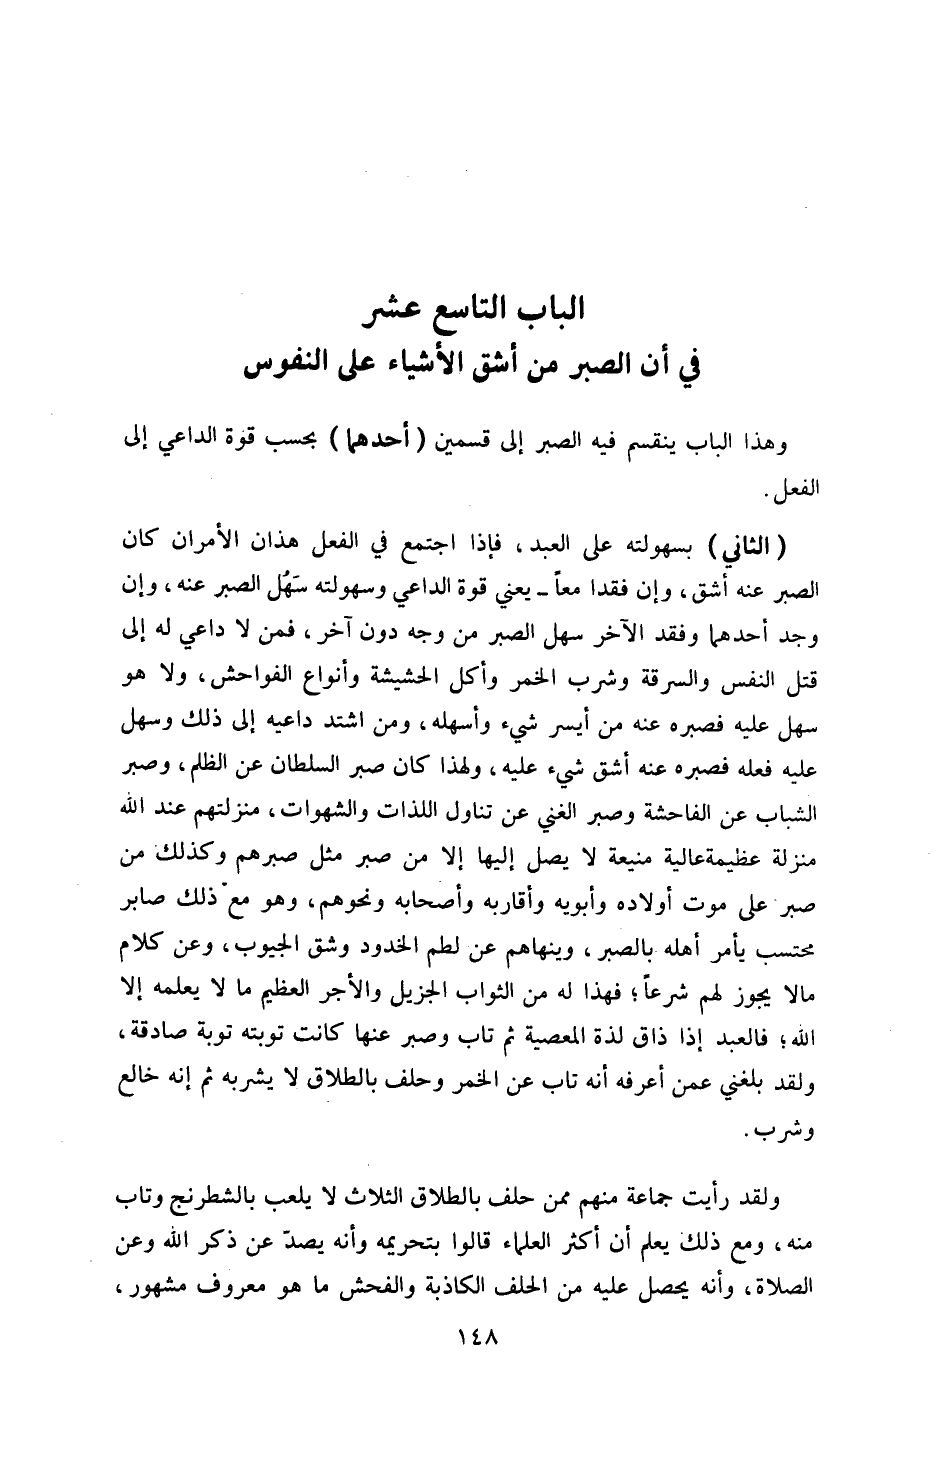 الباب التاسع عشر
في أن الصبر من أشق الأشياء على النفوس
وهذا الباب ينقسم فيه الصبر إلى قسمين (أحدهما) بحسب قوة الداعي إلى
الفعل.
(الثاني) بسهولته على العبد، فإذا اجتمع في الفعل هذان الأمران كان
الصبر عنه أشق، وإن فقدا معاً ـ يعني قوة الداعي وسهولته سَهُل الصبر عنه، وإن
وجد أحدهما وفقد الآخر سهل الصبر من وجه دون آخر، فمن لا داعي له إلى
قتل النفس والسرقة وشرب الخمر وأكل الحشيشة وأنواع الفواحش، ولا هو
سهل عليه فصبره عنه من أيسر شيء وأسهله، ومن اشتد داعيه إلى ذلك وسهل
عليه فعله فصبره عنه أشق شيء عليه، ولهذا كان صبر السلطان عن الظلم، وصبر
الشباب عن الفاحشة وصبر الغني عن تناول اللذات والشهوات، منزلتهم عند الله
منزلة عظيمة عالية منيعة لا يصل إليها إلا من صبر مثل صبرهم وكذلك من
صبر على موت أولاده وأبويه وأقاربه وأصحابه ونحوهم، وهو مع ذلك صابر
محتسب يأمر أهله بالصبر، وينهاهم عن لطم الخدود وشق الجيوب، وعن كلام
مالا يجوز لهم شرعاً؛ فهذا له من الثواب الجزيل والأجر العظيم ما لا يعلمه إلا
الله؛ فالعبد إذا ذاق لذة المعصية ثم تاب وصبر عنها كانت توبته توبة صادقة،
ولقد بلغني عمن أعرفه أنه تاب عن الخمر وحلف بالطلاق لا يشربه ثم إنه خالع
وشرب.
ولقد رأيت جماعة منهم ممن حلف بالطلاق الثلاث لا يلعب بالشطرنج وتاب
منه، ومع ذلك يعلم أن أكثر العلماء قالوا بتحريمه وأنه يصدّ عن ذكر الله وعن
الصلاة، وأنه يحصل عليه من الحلف الكاذبة والفحش ما هو معروف مشهور،
١٤٨